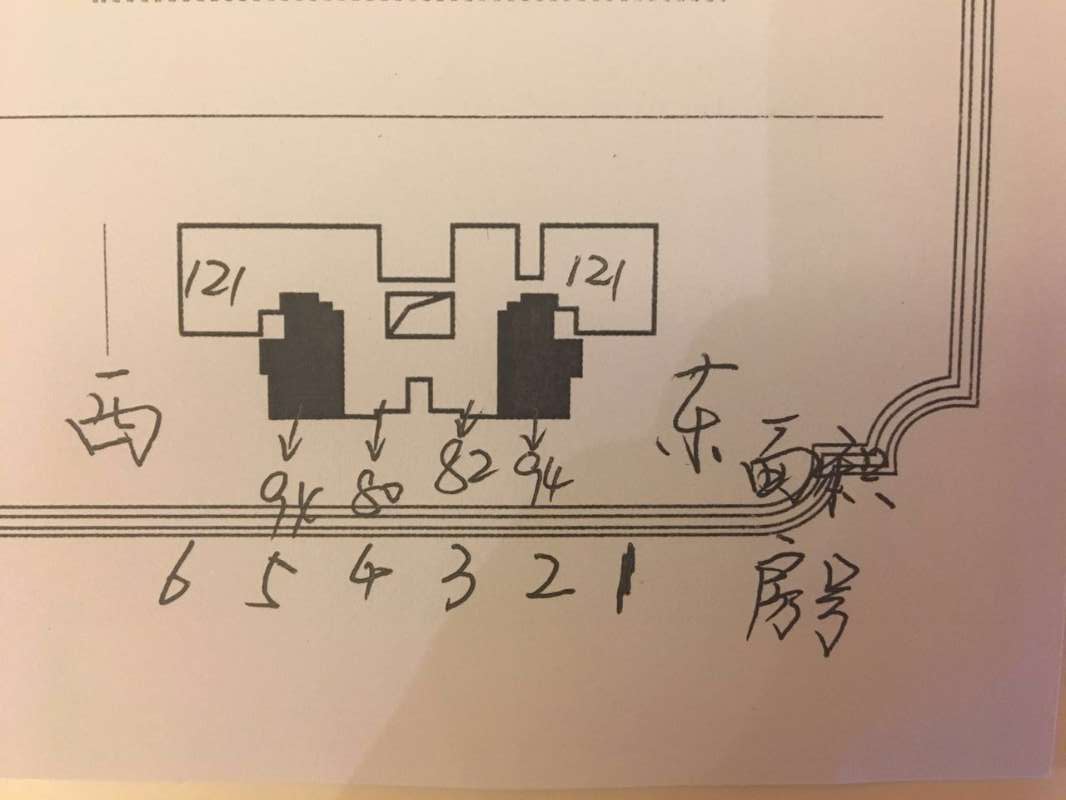 121 121
西 东
94 80 82 94 面积
6 5 4 3 2 1
房号